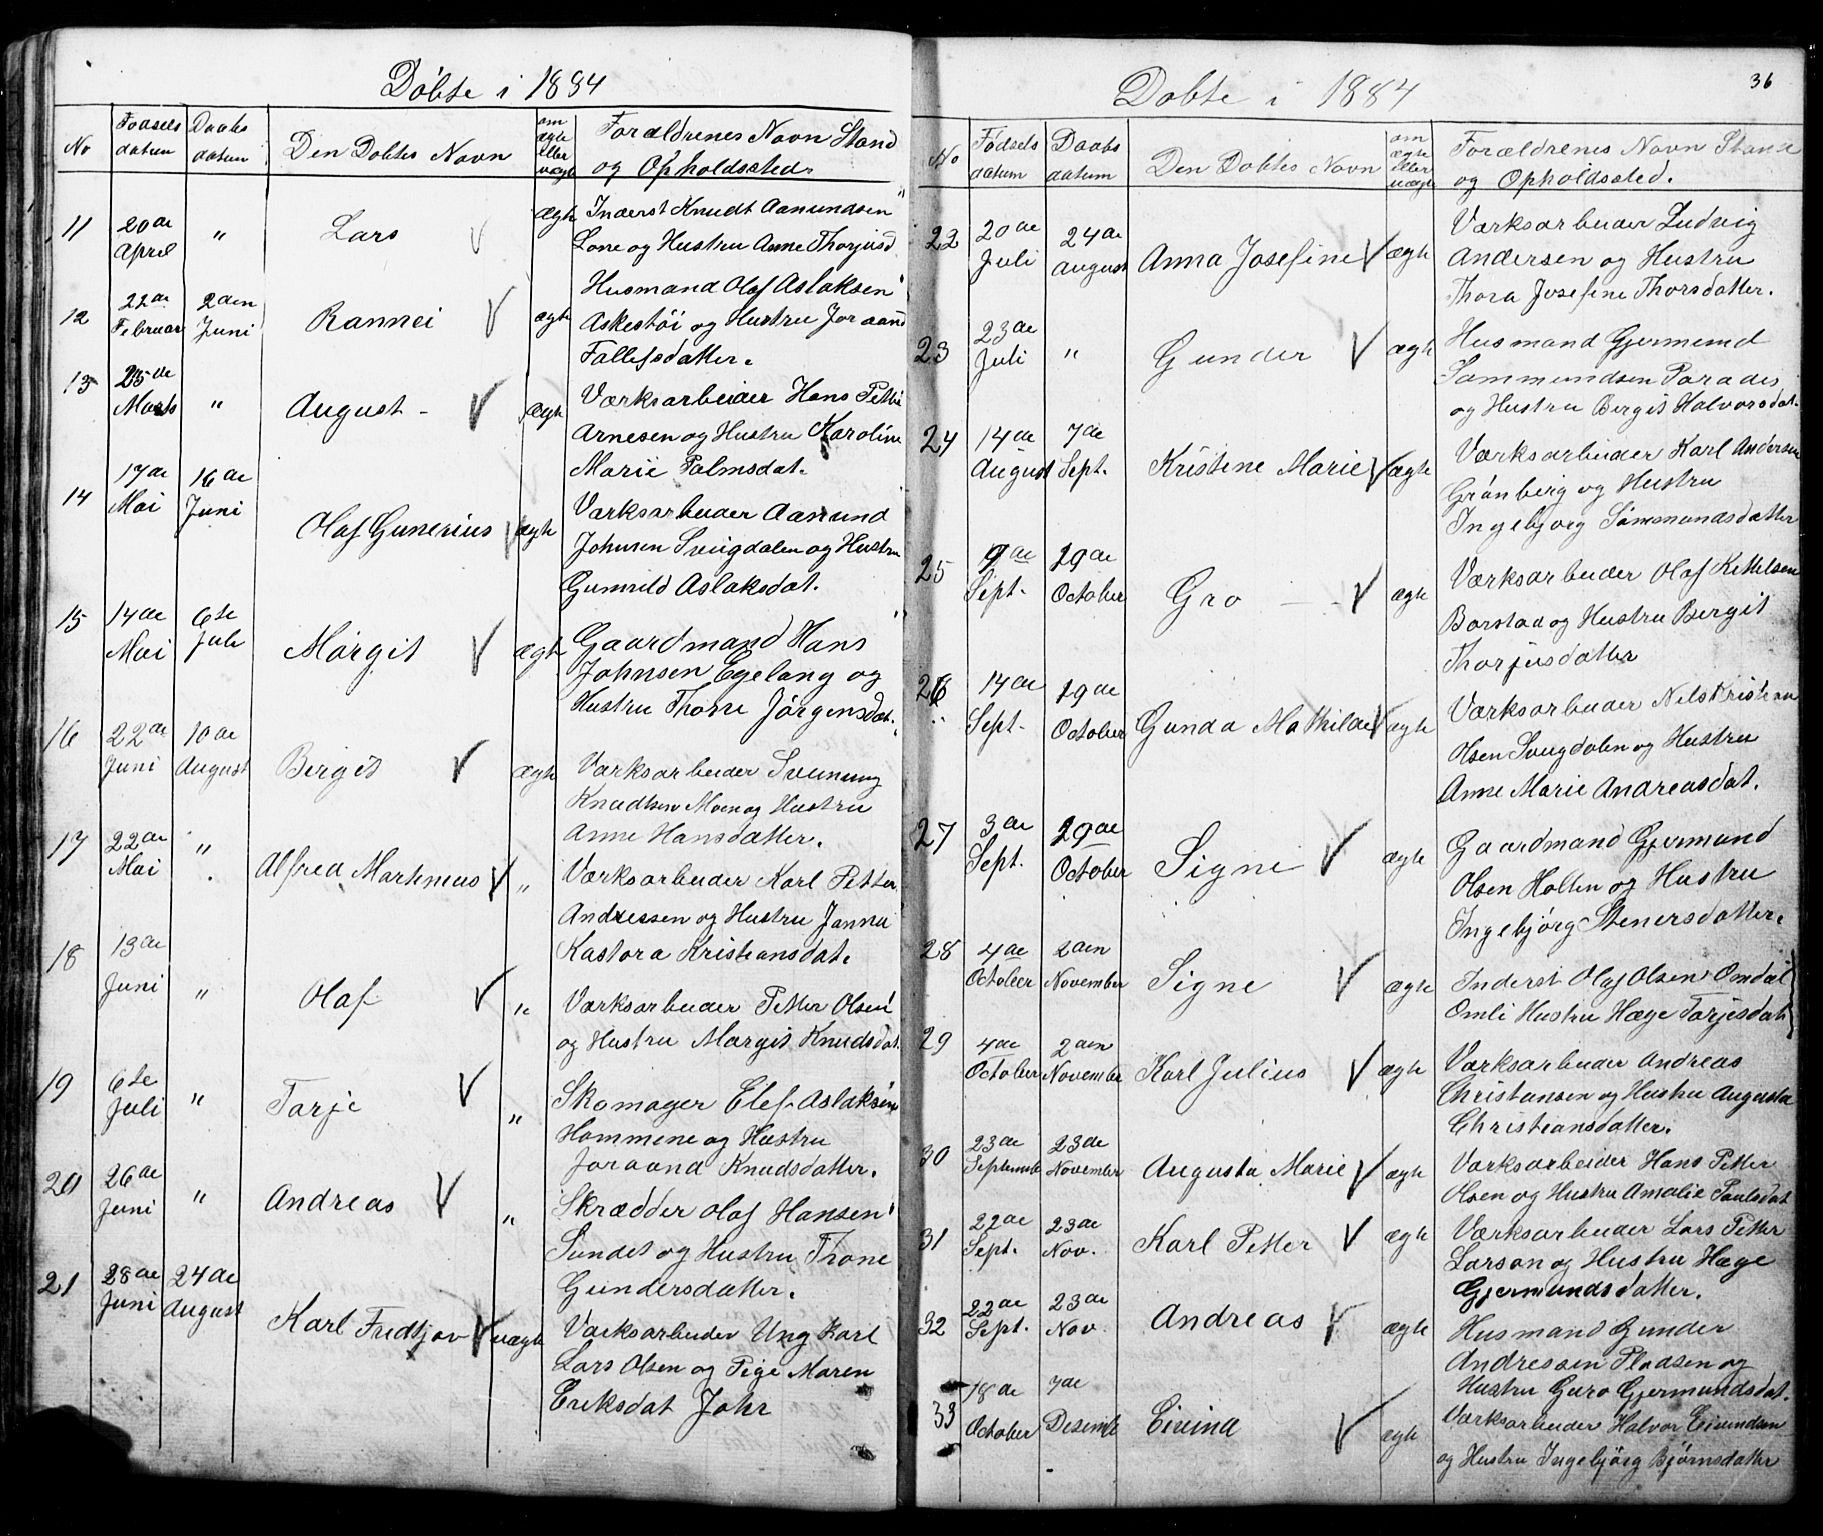 Döbte i 1884
No
Fødsels datum
Daabs datum
Den Döbtes Navn
om ægte eller uægte
Forældrenes Navn Stand og Opholdssted.
11 20de April " Lars ægte Inderst Knudt Aamundsen
Lone og Hustru Anne Thorjusd
12 22de Februar 2den Juni Rannei ægte Husmand Olaf Aslaksen
Askestöi og Hustru Joraand
Tallefsdatter.
13 25de Marts " August - ægte Værksarbeider Hans Petter
Arnesen og Hustru Karoline
Marie Palmsdat.
14 17de Mai 16de Juni Olaf Gunerius ægte Værksarbeider Aanund
Johnsen Sveigdalen og Hustru
Gunnild Aslaksdat.
15 14de Mai 6te Juli Margit ægte Gaardmand Hans
Johnsen Egelang og
Hustru Thone Jörgensdat.
16 22de Juni 10de August Bergit ægte Værksarbeider Sveinung
Knudtsen Moen og Hustru
Anne Hansdatter.
17 22de Mai " Alfred Martinius " Værksarbeider Karl Petter
Andressen og Hustru Janna
Kastora Kristiansdat.
18 13de Juni " Olaf " Værksarbeider Petter Olsen
og Hustru Margit Knudsdat.
19 6te Juli " Tarje " Skomager Elef Aslaksen
Hommene og Hustru
Joraand Knudsdatter.
20 26de Juni " Andreas " Skrædder Olaf Hansen
Sundet og Hustru Thone
Gundersdatter.
21 28de Juni 24de August Karl Fredtjov uægte Værksarbeider Ung Karl
Lars Olsen og Pige Maren
Eriksdat Johr
36
Döbte i 1884
No
Fødsels datum
Daabs datum
Den Döbtes Navn
om ægte eller uægte
Forældrenes Navn Stand
og Opholdssted.
22 20de Juli 24de August Anna Josefine ægte Værksarbeider Ludvig
Andersen og Hustru
Thora Josefine Thorsdatter.
23 23de Juli " Gunder ægte Husmand Gjermund
Sammundsen Paradis
og Hustru Bergit Halvorsdat.
24 14de August 7de Sept. Kristine Marie ægte Værksarbeider Karl Andersen
Grönberg og Hustru
Ingebjorg Sammundsdatter
25 9de Sept. 19de October Gro ægte Værksarbeider Olaf Kittelsen
Borstad og Hustru Bergit
Thorjusdatter
26 14de Sept. 19de October Gunda Mathilde ægte Værksarbeider Nels Kristian
Olsen Sveigdalen og Hustru
Anne Marie Andreasdat.
27 3de Sept. 19de October Signe ægte Gaardmand Gjermund
Olsen Holten og Hustru
Ingebjörg Stenersdatter.
28 4de October 2den November Signe ægte Inderst Olaf Olsen Omdal
Omli Hustru Hæge Tarjesdat
29 4de October 2den November Karl Julius ægte Værksarbeider Andreas
Christansen og Hustru Augusta
Christiansdatter.
30 23de Septembe 23de November Augusta Marie ægte Værksarbeider Hans Petter
Olsen og Hustru Amalie Paulsdat
31 22de Sept. 23de Nov. Karl Petter ægte Værksarbeider Lars Petter
Larson og Hustru Hæge
Gjermundsdatter.
32 22de Sept. 23de Nov Andreas ægte Husmand Gunder
Andressen Pladsen og
Hustru Guro Gjermundsdat.
33 18de October 7de Desembe Eivind ægte Værksarbeider Halvor Eivindsen
og Hustru Ingebjörg Björnsdatter